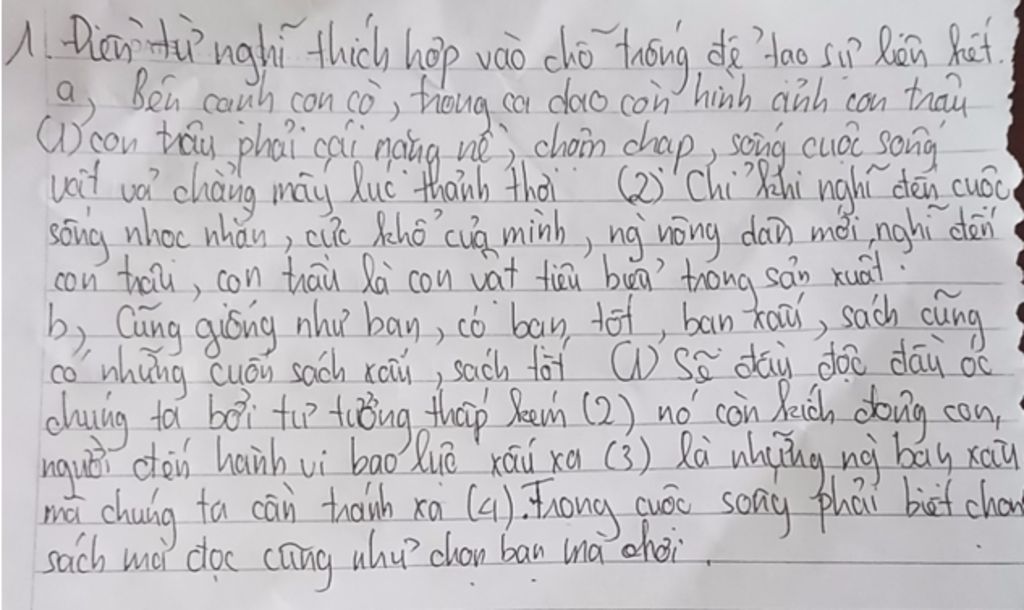 1. Điền từ nghĩ thích hợp vào chỗ trống để tạo sự liên kết.
a, Bên cạnh con cò, trong ca dao còn hình ảnh con trâu
(1) con trâu phải cái nặng nề, chậm chạp, sống cuộc sống
vất vả chẳng mấy lúc thảnh thơi (2) Chỉ khi nghĩ đến cuộc
sống nhọc nhằn, cực khổ của mình, ng nông dân mới nghĩ đến
con trâu, con trâu là con vật tiêu biểu trong sản xuất.
b, Cũng giống như bạn, có bạn tốt, bạn xấu, sách cũng
có những cuốn sách xấu, sách tốt (1) Sẽ đầu độc đầu óc
chúng ta bởi tư tưởng thấp kém (2) nó còn kích động con
người đến hành vi bạo lực xấu xa (3) là những ng bạn xấu
mà chúng ta cần tránh xa (4). Trong cuộc sống phải biết chọn
sách mà đọc cũng như chọn bạn mà chơi.